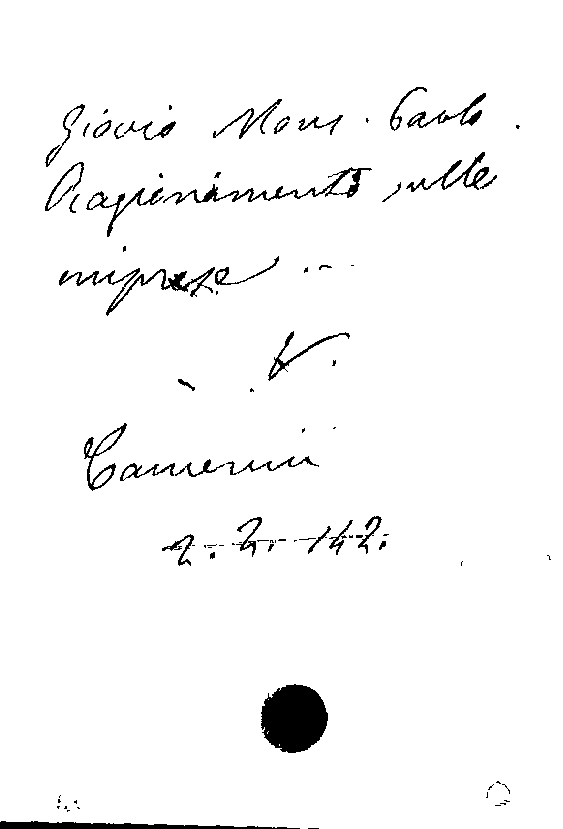 Giovio Mons. Paolo.
Ragionamento sulle
imprese ...
V.
Camerini
2. 2. 142.